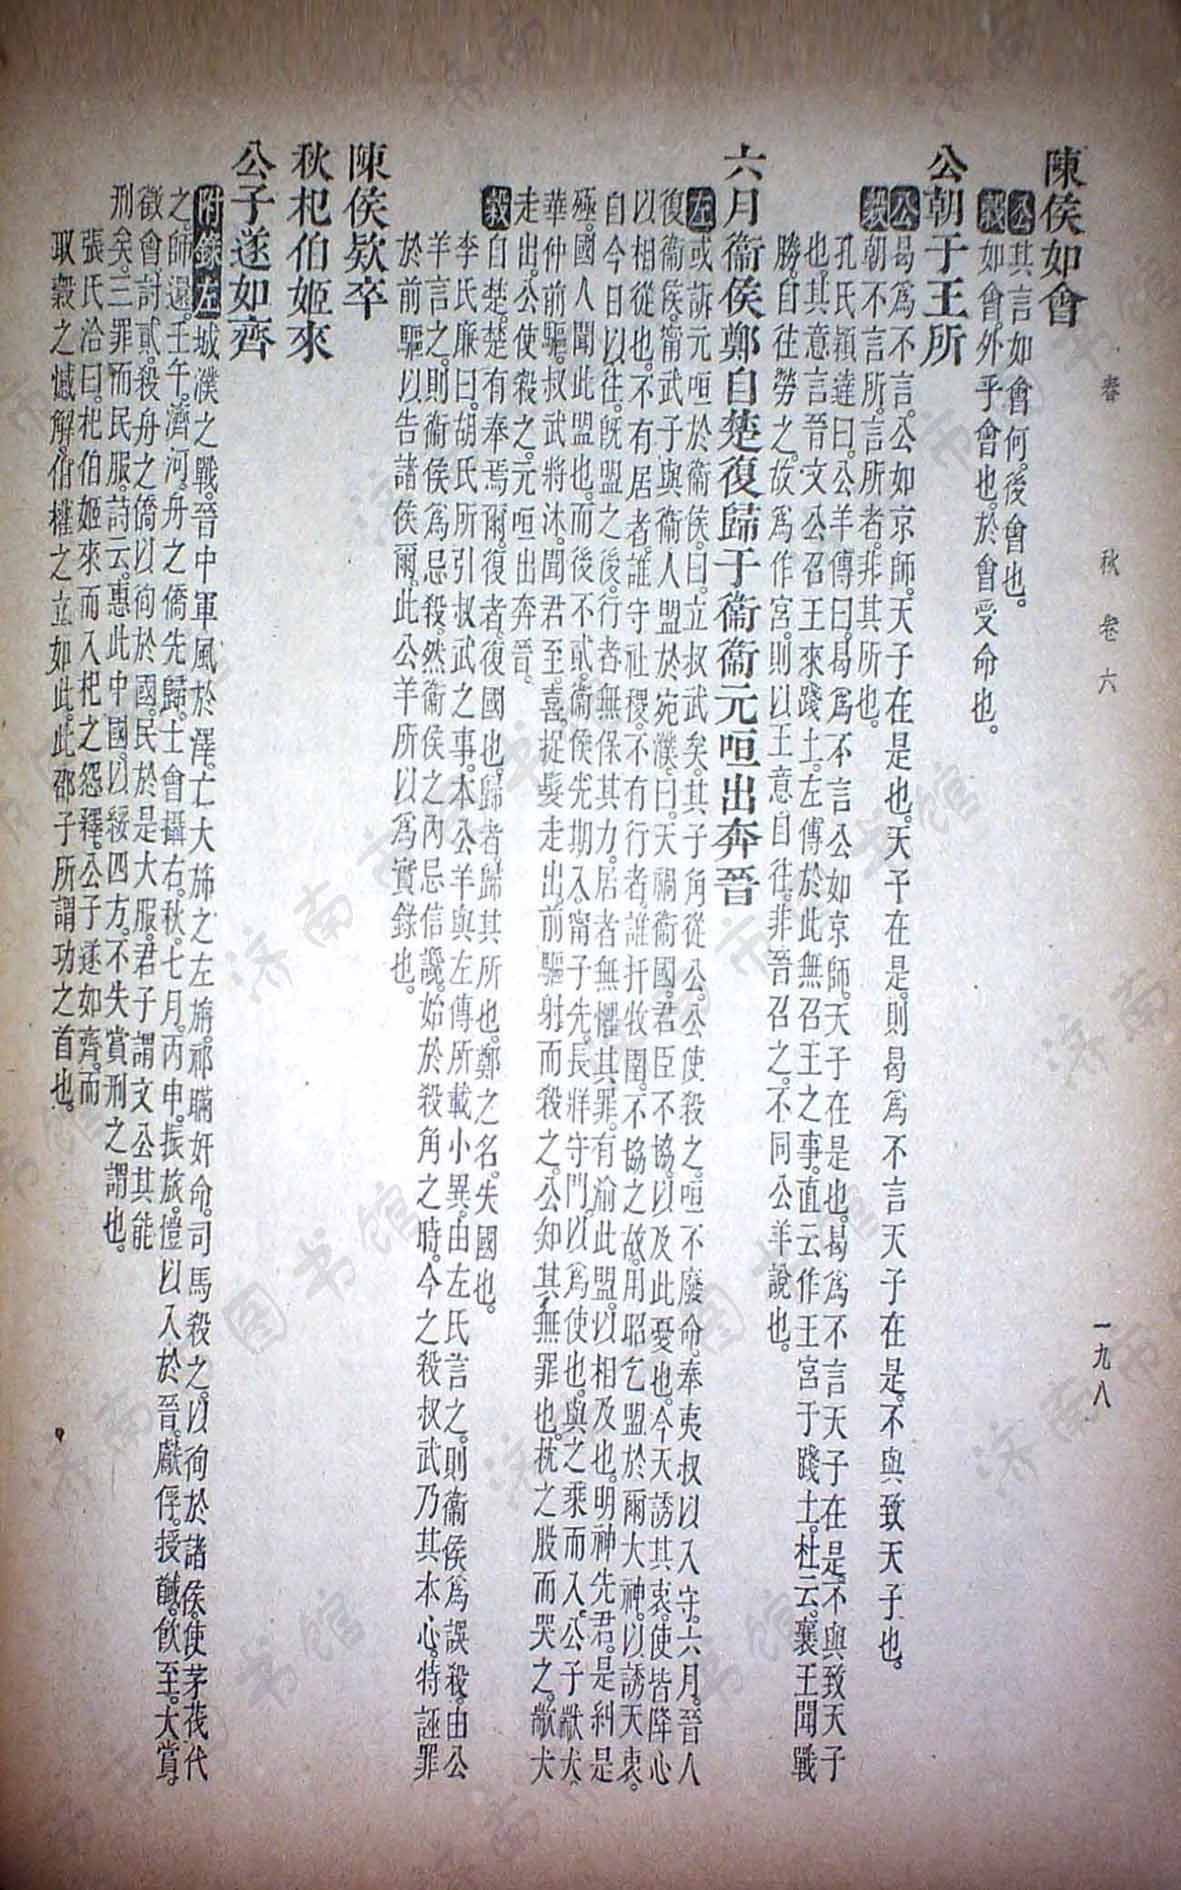 春秋卷六
一九八
陳侯如會
公其言如會何。後會也。
穀如會。外乎會也。於會受命也。
公朝于王所
公曷爲不言公如京師。天子在是也。天子在是。則曷爲不言天子在是。不與致天子也。
穀朝不言所。言所者。非其所也。
孔氏穎達曰。公羊傳曰。曷爲不言公如京師。天子在是也。曷爲不言天子在是。不與致天子
也。其意言晉文公召王來踐土。左傳於此無召王之事。直云作王宮于踐土。杜云。襄王聞戰
勝。自往勞之。故爲作宮。則以王意自往。非晉召之。不同公羊說也。
六月衞侯鄭自楚復歸于衞衞元咺出奔晉
左或訴元咺於衞侯。曰。立叔武矣。其子角從公。公使殺之。咺不廢命。奉夷叔以入守。六月。晉人
復衞侯。甯武子與衞人盟於宛濮。曰。天禍衞國。君臣不協。以及此憂也。今天誘其衷。使皆降心
以相從也。不有居者。誰守社稷。不有行者。誰扞牧圉。不協之故。用昭乞盟於爾大神。以誘天衷。
自今日以往。旣盟之後。行者無保其力。居者無懼其罪。有渝此盟。以相及也。明神先君。是糾是
殛。國人聞此盟也。而後不貳。衞侯先期入。甯子先。長牂守門。以爲使也。與之乘而入。公子歂犬
華仲前驅。叔武將沐。聞君至。喜。捉髮走出。前驅射而殺之。公知其無罪也。枕之股而哭之。歂犬
走出。公使殺之。元咺出奔晉。
穀自楚。楚有奉焉爾。復者。復國也。歸者。歸其所也。鄭之名。失國也。
李氏廉曰。胡氏所引叔武之事。本公羊與左傳所載小異。由左氏言之。則衞侯爲誤殺。由公
羊言之。則衞侯爲忌殺。然衞侯之內忌信讒。始於殺角之時。今之殺叔武乃其本心。特誣罪
於前驅以告諸侯爾。此公羊所以爲實錄也。
陳侯款卒
秋杞伯姬來
公子遂如齊
附錄左城濮之戰。晉中軍風於澤。亡大旆之左旃。祁瞞奸命。司馬殺之。以徇於諸侯。使茅茷代
之。師還。壬午。濟河。舟之僑先歸。士會攝右。秋。七月。丙申。振旅。愷以入於晉。獻俘。授馘。飮至。大賞。
徵會討貳。殺舟之僑以徇於國。民於是大服。君子謂文公其能
刑矣。三罪而民服。詩云。惠此中國。以綏四方。不失賞刑之謂也。
張氏洽曰。杞伯姬來而入杞之怨釋。公子遂如齊。而
取穀之憾解。伯權之立如此。此邵子所謂功之首也。